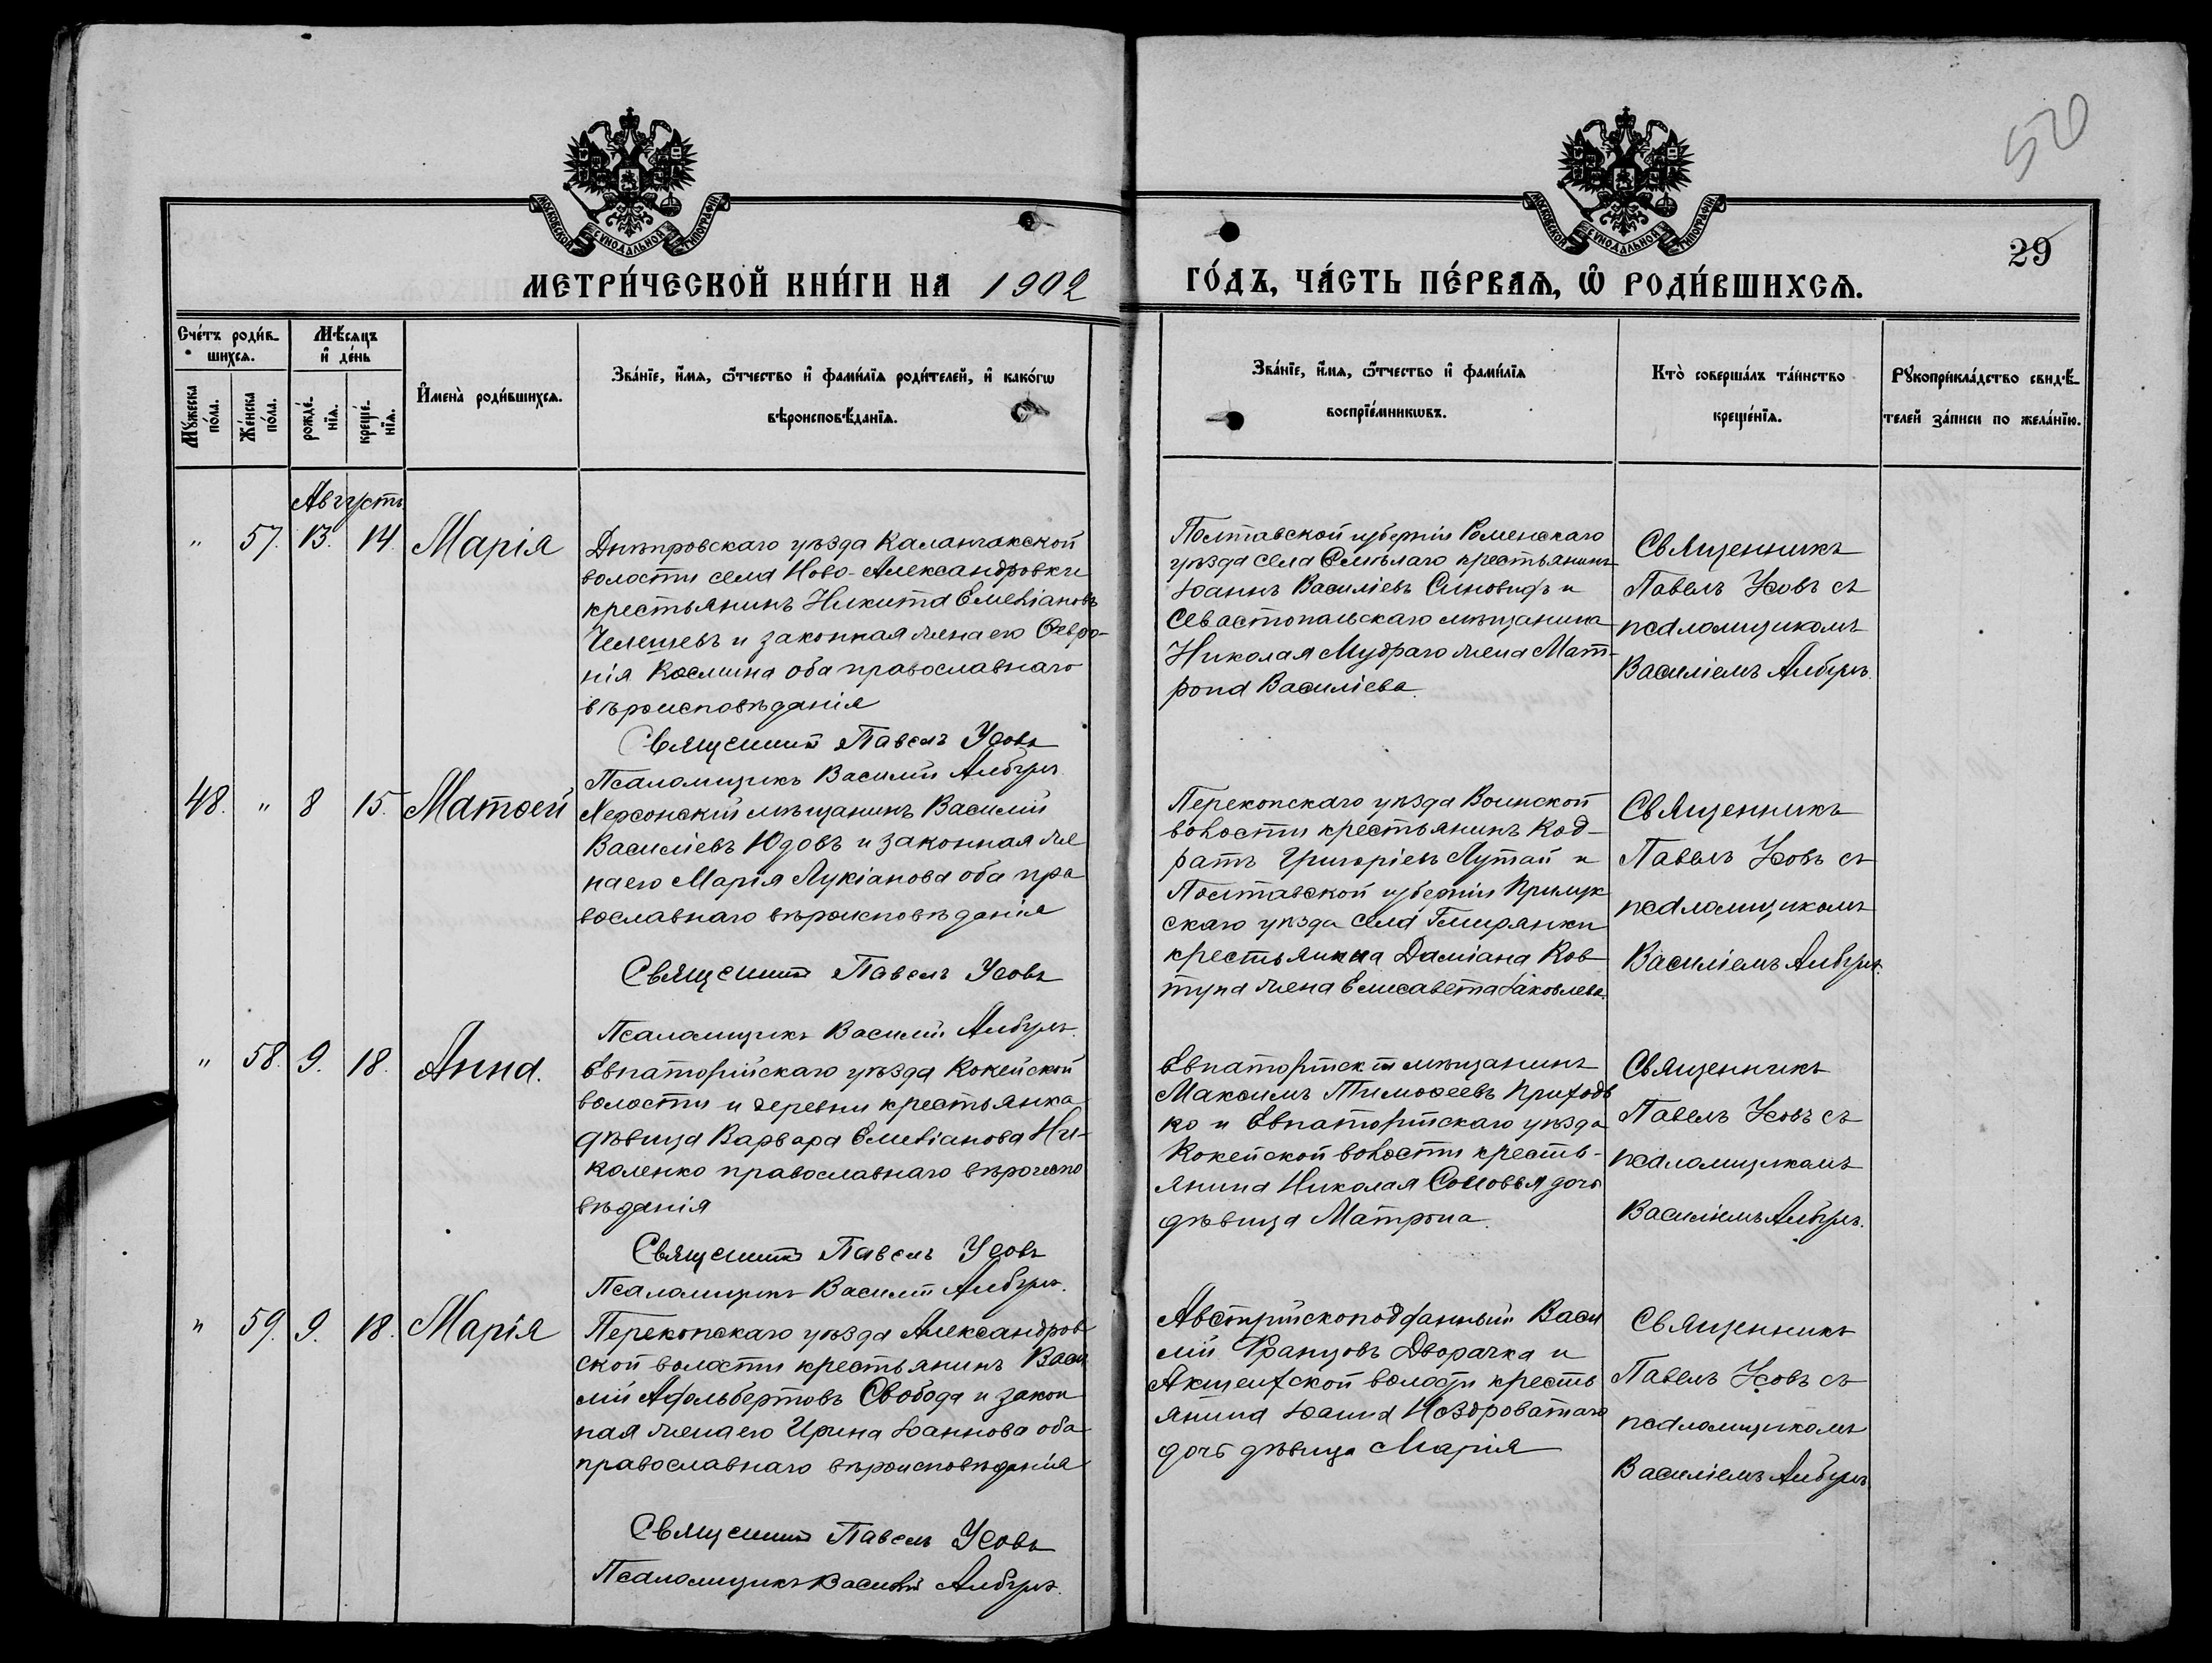 50
МОСКОВСКОЙ СѴНОДАЛЬНОЙ ТИПОГРАФІИ
МОСКОВСКОЙ СѴНОДАЛЬНОЙ ТИПОГРАФІИ
29
МЕТРИ́ЧЕСКОЙ КНИ́ГИ НА 1902
ГО́ДЪ, ЧА́СТЬ ПЕ́РВАѦ, Ѡ҃ РОДИ́ВШИХСѦ.
Сче́тъ роди́в-
шихсѧ.
Мꙋ́жеска по́ла.
Же́нска по́ла.
Мѣ́сѧцъ
и҆ де́нь
рожде́-
нїѧ.
креще́-
нїѧ.
И҆мена̀ роди́вшихсѧ.
Зва́нїе, и҆́мѧ, ѻ҆́тчество и҆ фами́лїѧ роди́телей, и҆ како́гѡ
вѣроисповѣ́данїѧ.
Зва́нїе, и҆́мѧ, ѻ҆́тчество и҆ фами́лїѧ
воспрїе́мникѡвъ.
Кто̀ соверша́лъ та́инство
креще́нїѧ.
Рꙋкоприкла́дство свидѣ́-
телей за́писи по жела́нїю.
Августъ
" 57. 13. 14. Марія
Днѣпровскаго уѣзда Каланчакской
волости села Ново-Александровки
крестьянинъ Никита Емеліановъ
Челешевъ и законная жена его Февро-
нія Космина оба православнаго
вѣроисповѣданія
Священникъ Павелъ Усовъ
Псаломщикъ Василій
Полтавской губерніи Роменскаго
уѣзда села Смѣлаго крестьянинъ
Іоаннъ Василіевъ и
Севастопальскаго мѣщанина
Николая Мудраго жена Мат-
рона Василіева.
Священникъ
Павелъ Усовъ съ
псаломщикомъ
Василіемъ
48. " 8 15. Матѳей
Херсонскій мѣщанинъ Василій
Василіевъ Юдовъ и законная же
на его Марія Лукіанова оба пра
вославнаго вѣроисповѣданія
Священникъ Павелъ Усовъ
Псаломщикъ Василій
Перекопскаго уѣзда Воинской
волости крестьянинъ Код-
ратъ Григоріевъ Лутай и
Полтавской губерніи Прилук
скаго уѣзда села Гмирянки
крестьянина Даміана Ков
туна жена Елисавета Іаковлева.
Священникъ
Павелъ Усовъ съ
псаломщикомъ
Василіемъ
" 58. 9. 18. Анна.
Евпаторійскаго уѣзда Кокейской
волости и деревни крестьянка
дѣвица Варвара Емеліанова Ни-
коленко православнаго вѣроиспо
вѣданія
Священникъ Павелъ Усовъ
Псаломщикъ Василій
Евпаторійскій мѣщанинъ
Максимъ Тимоѳеевъ Приходь
ко и Евпаторійскаго уѣзда
Кокейской волости кресть-
янина Николая Соловья дочь
дѣвица Матрона.
Священникъ
Павелъ Усовъ съ
псаломщикомъ
Василіемъ
" 59. 9. 18. Марія
Перекопскаго уѣзда Александров
ской волости крестьянинъ Васи
лій Адольбертовъ Свобода и закон
ная жена его Ирина Іоаннова оба
православнаго вѣроисповѣданія
Священникъ Павелъ Усовъ
Псаломщикъ Василій
Австрійскоподданный Васи
лій Францовъ Дворачка и
Акшеихской волости кресть
янина Іоанна Ноздроватаго
дочь дѣвица Марія
Священникъ
Павелъ Усовъ съ
псаломщикомъ
Василіемъ